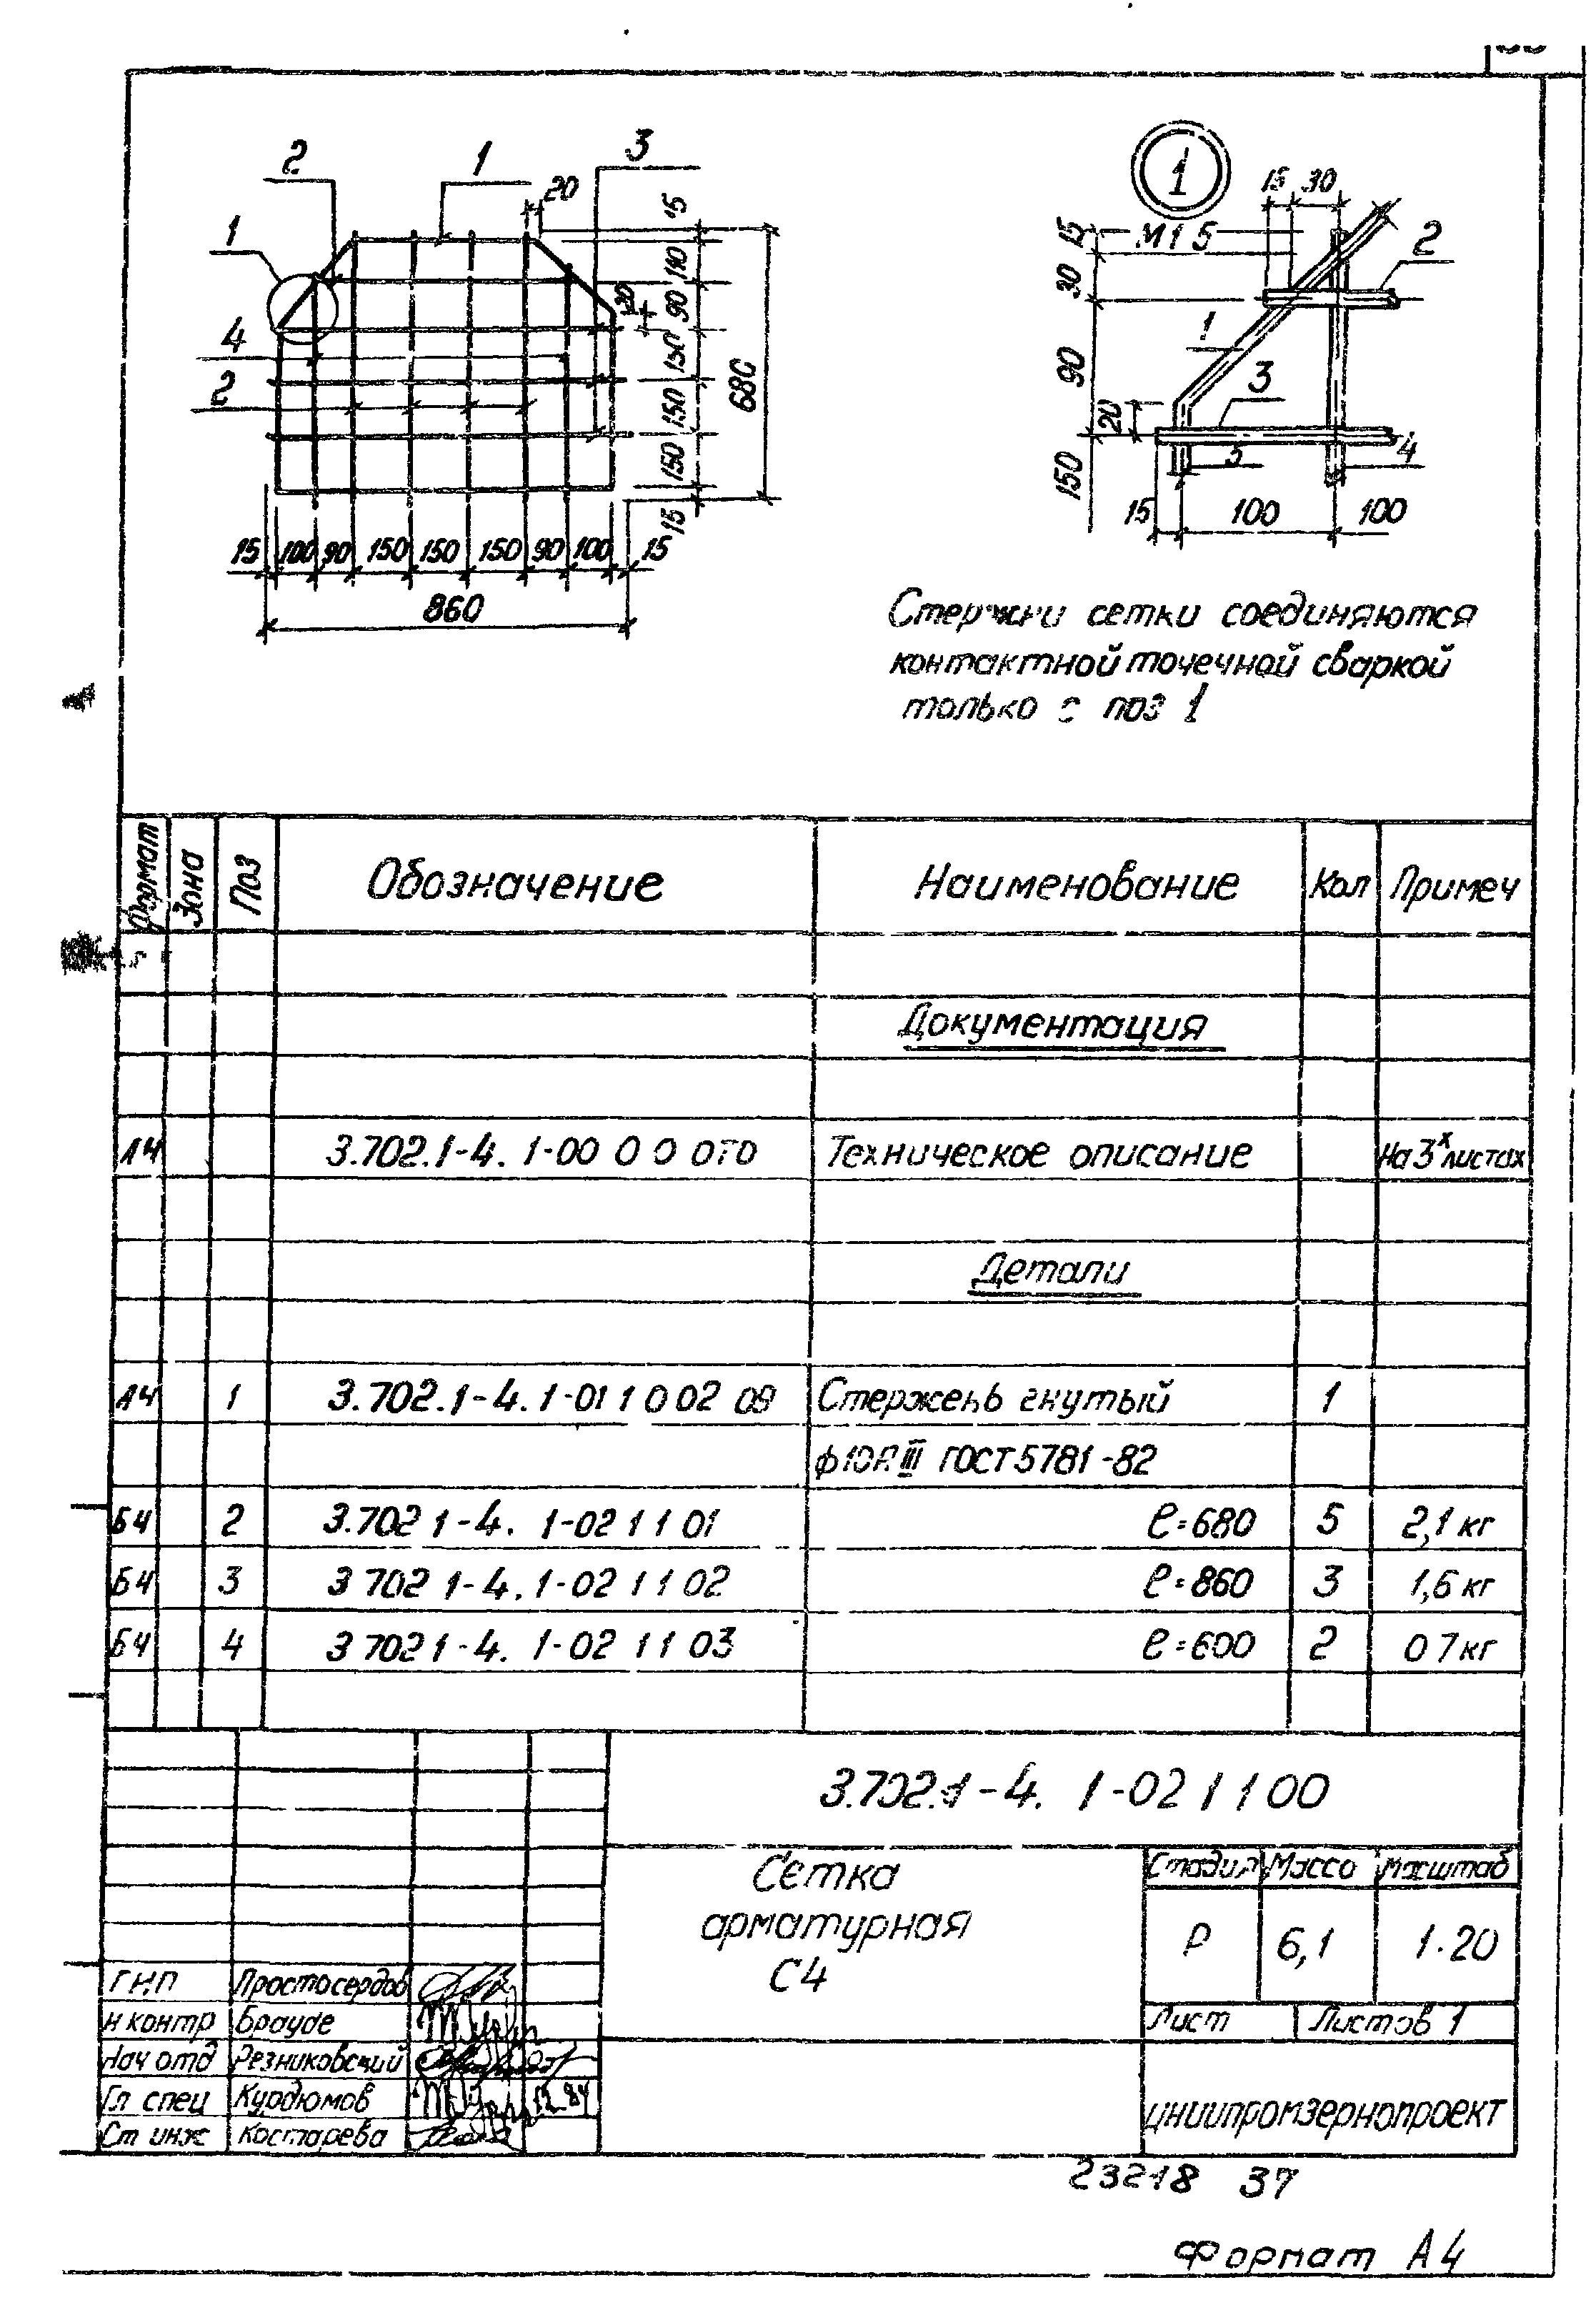 2 1 3
20
1
4
2
15
110
90
20
150
150
150
15
680
15 100 90 150 150 150 90 100 15
860
1
М1 5
15 30
15
30
90
20
150
2
1
3
3
4
15 100 100
Стержни сетки соединяются
контактной точечной сваркой
только с поз 1
Формат Зона Поз Обозначение Наименование Кол Примеч
Документация
А4 3.702.1-4. 1-00 0 0 0ТО Техническое описание На 3х листах
Детали
А4 1 3.702.1-4. 1-01 1 0 02 09 Стержень гнутый 1
ф10АIII ГОСТ 5781-82
Б4 2 3.702 1-4. 1-02 1 1 01 ℓ=680 5 2,1 кг
Б4 3 3 702 1-4. 1-02 1 1 02 ℓ=860 3 1,6 кг
Б4 4 3 702 1-4. 1-02 1 1 03 ℓ=600 2 0 7 кг
3.702.1-4. 1-02 1 1 00
Сетка
арматурная
С4
Стадия Масса Масштаб
Р 6,1 1·20
Лист Листов 1
ЦНИИПРОМЗЕРНОПРОЕКТ
ГИП Простосердов
Н контр Брауде
Нач отд Резниковский
Гл спец Курдюмов 12.84
Ст инж Костарева
23218 37
Формат А4